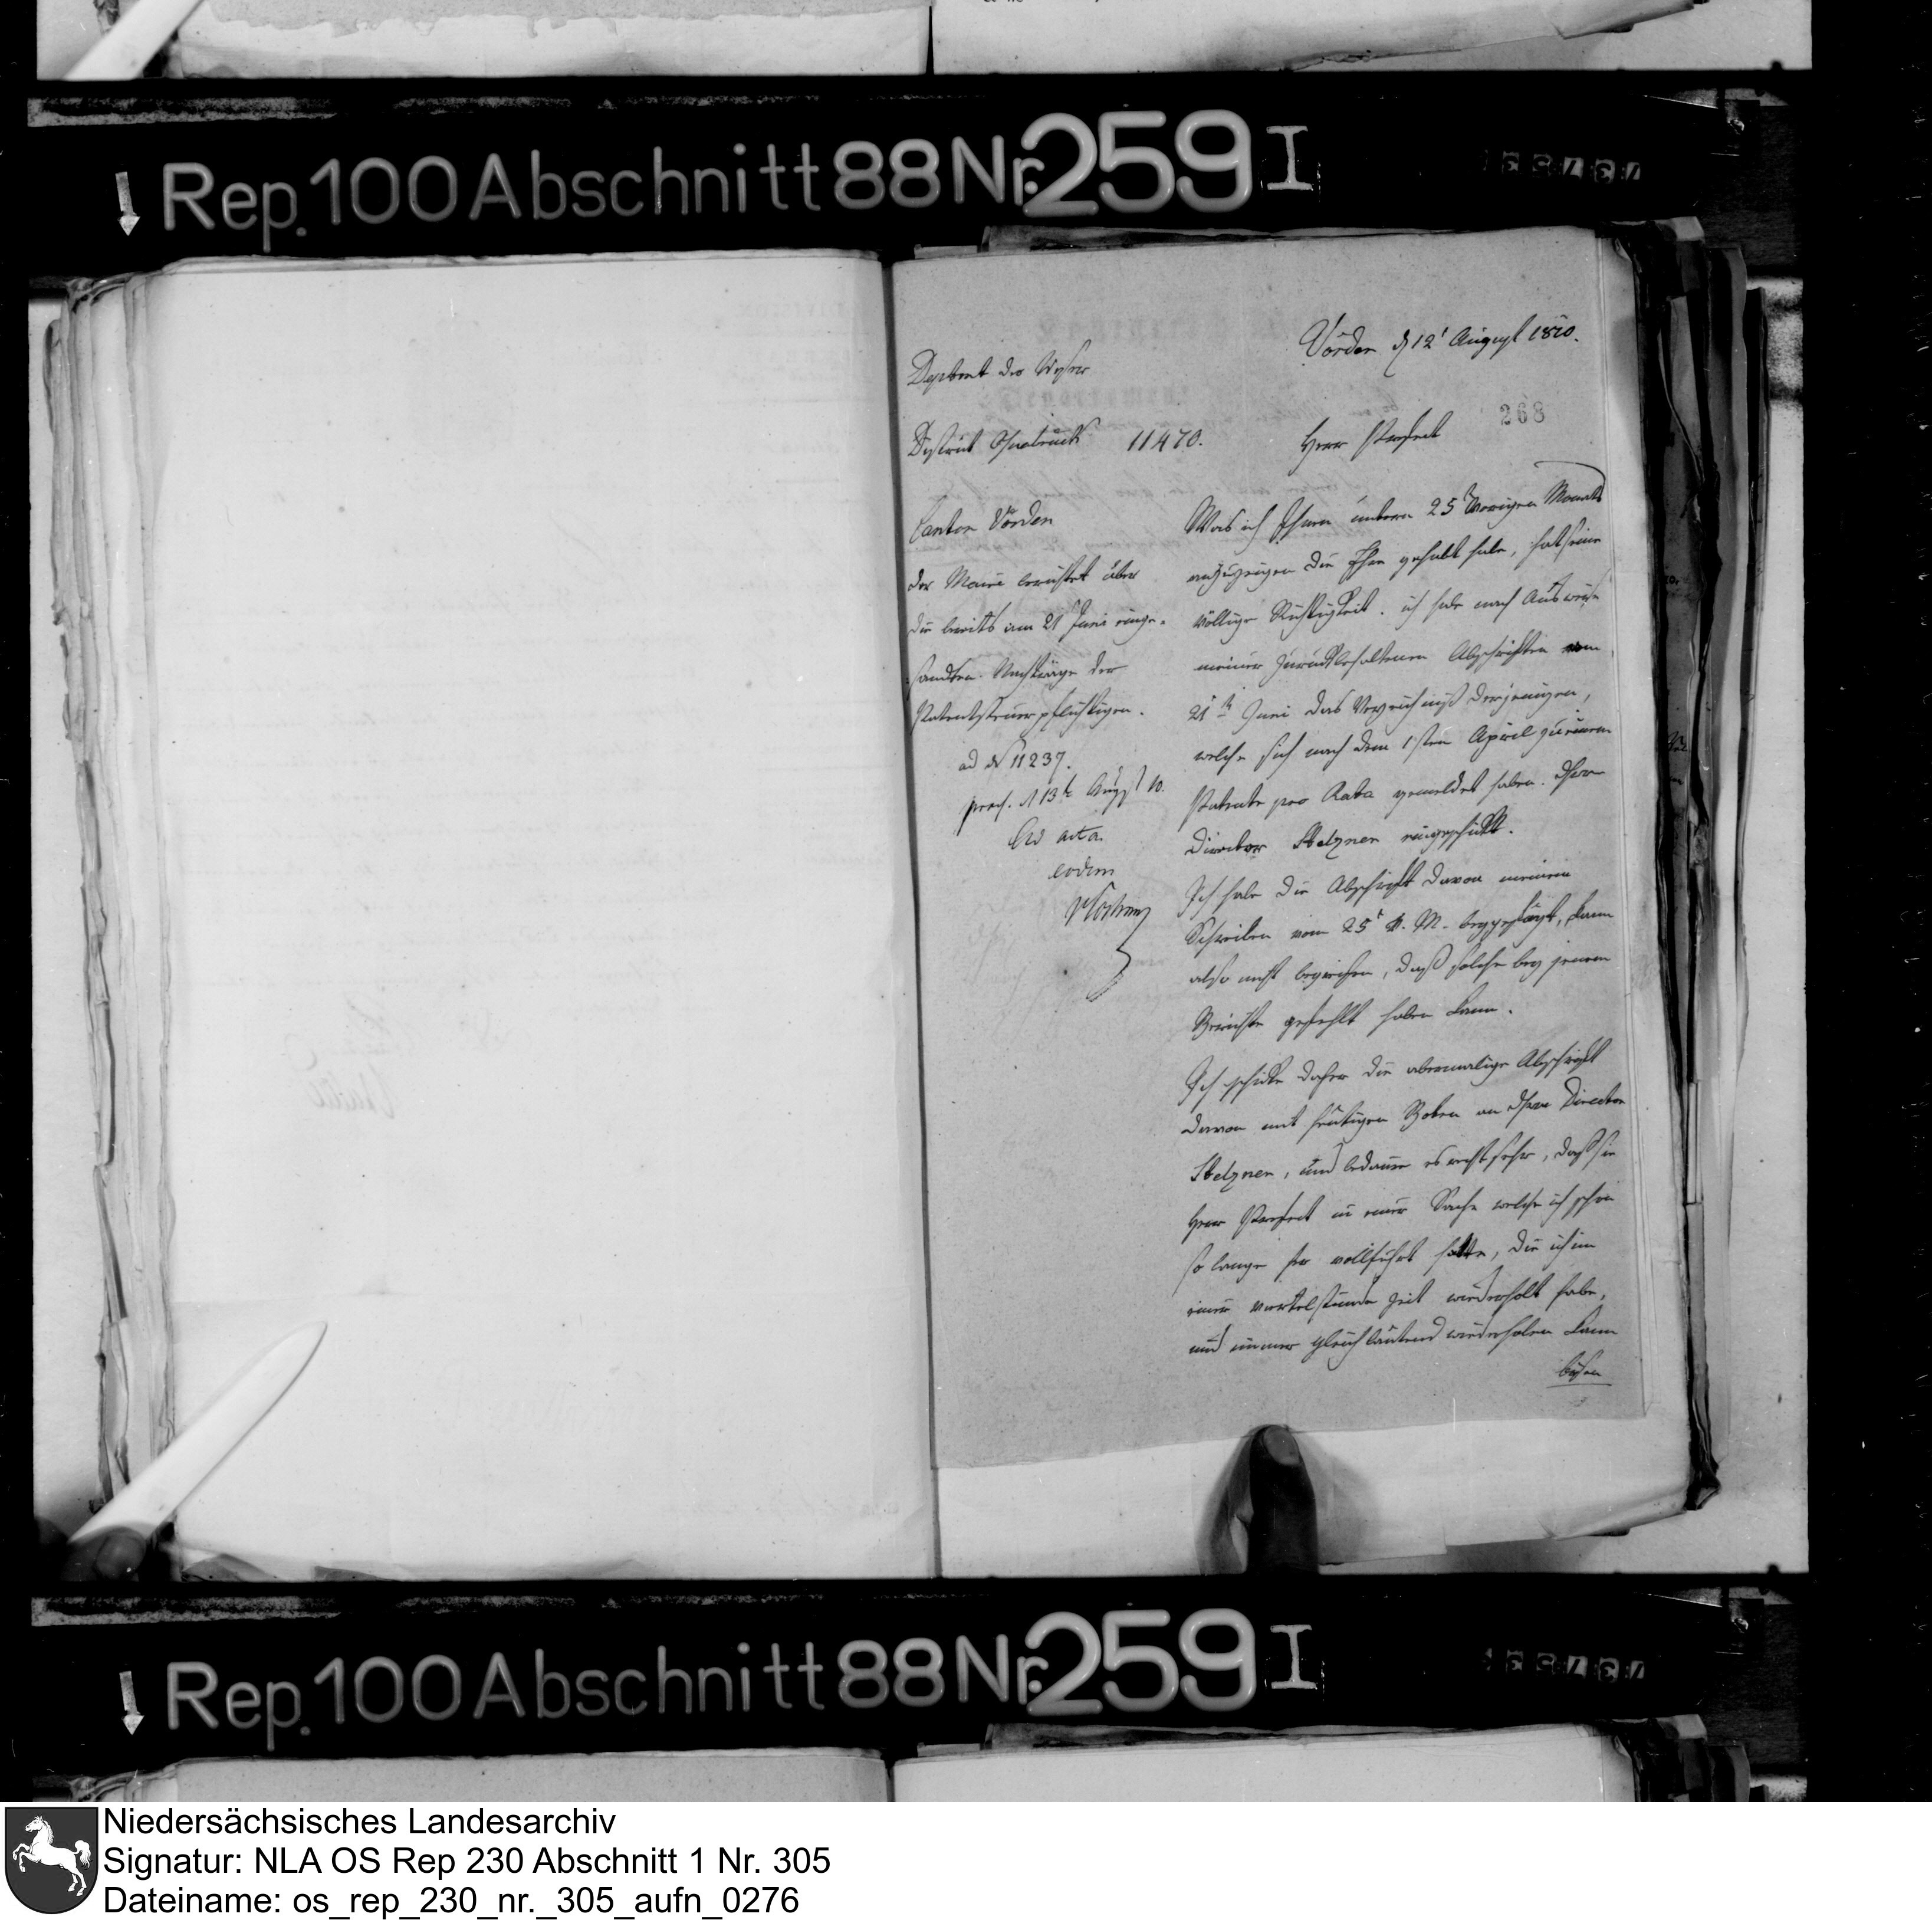 Rep. 100 Abschnitt 88 Nr. 259 I
Vörden d 12t August 1810.
Departmt der Weser
268
District Osnabrück 11470.
Herr Praefect
Canton Vörden
der Maire berichtet über
die bereits am 21t Juni einge-
sandten Nachträge der
Patentsteuerpflichtigen.
ad N 11237.
praes. d 13t August 10.
Ad acta
eodem
Was ich Ihnen unterm 25t vorigen Monats
anzuzeigen die Ehre gehabt habe, hat seine
völlige Richtigkeit. ich habe nach Ausweise
meiner zurückbehaltenen Abschriften vom
21ten Juni das Verzeichniß derjenigen,
welche sich nach dem 1sten April zu einem
Patente pro Rata gemeldet haben. dHerrn
Director Stelzner eingeschickt.
Ich habe die Abschrift davon meinem
Schreiben vom 25t v. M. beygefügt, kann
also nicht begreifen, daß solche bey jenem
Berichte gefehlt haben kann.
Ich schicke daher die abermalige Abschrift
davon mit heutigen Boten an dHerrn Director
Stelzner, und bedaure es recht sehr, daß sie
Herr Praefect in einer Sache welche ich schon
so lange vollführt hatte, die ich in
einer viertelstunde Zeit wiederholt habe,
und immer gleichlautend wiederholen kann
Rep. 100 Abschnitt 88 Nr. 259 I
Niedersächsisches Landesarchiv
Signatur: NLA OS Rep 230 Abschnitt 1 Nr. 305
Dateiname: os_rep_230_nr._305_aufn_0276